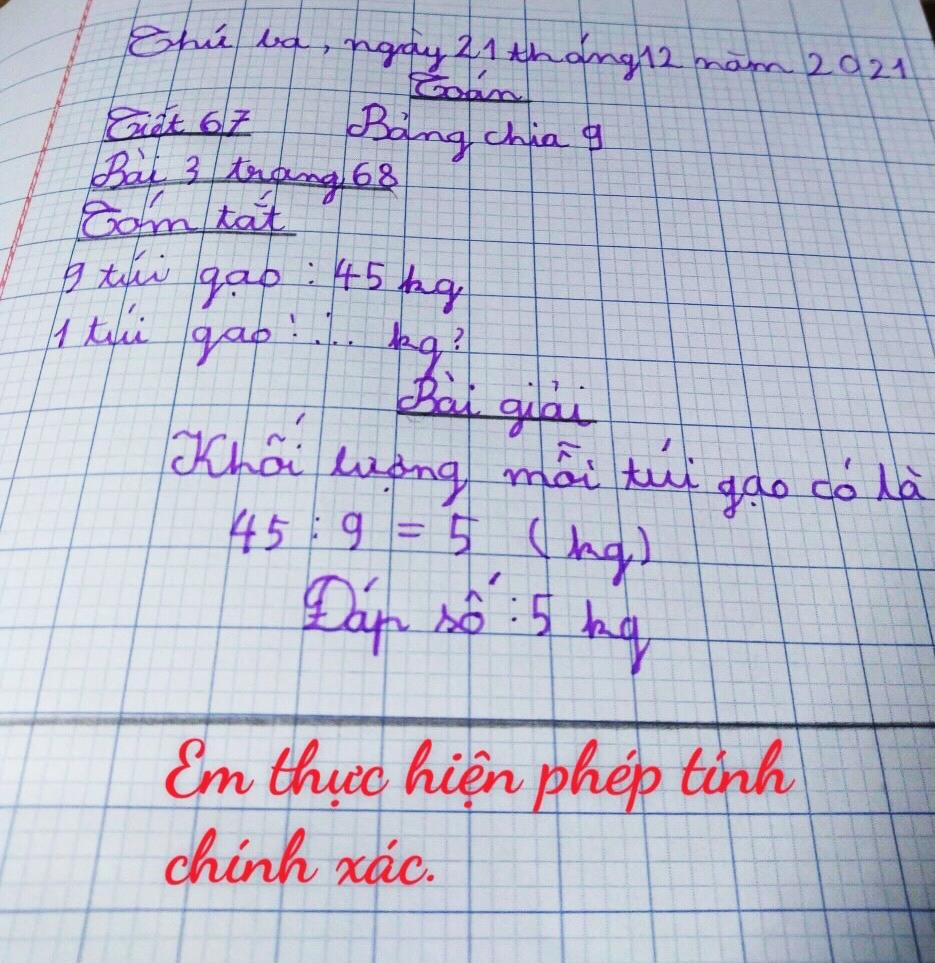 Thứ ba, ngày 21 tháng 12 năm 2021
Toán
Tiết 67 Bảng chia 9
Bài 3 trang 68
Tóm tắt
9 túi gạo : 45 kg
1 túi gạo : ... kg?
Bài giải
Khối lượng mỗi túi gạo có là
45 : 9 = 5 (kg)
Đáp số : 5 kg
Em thực hiện phép tính
chính xác.